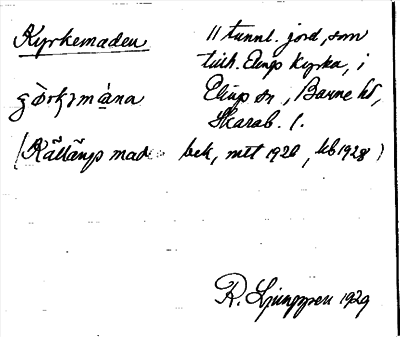 Kyrkemaden
11 tunnl. jord, som
tillh. Elings kyrka, i
Eling sn, Barne hd,
Skarab. l.
(Källängs mad bek, mtt 1926, kb 1928)
R. Ljunggren 1929